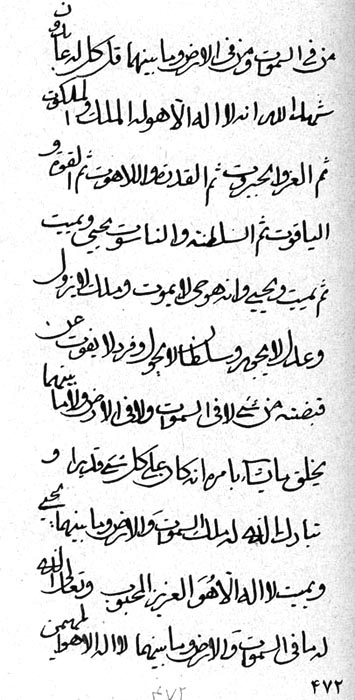 من فی السموات و من فی الارض و ما بینهما قل کل له عابدون
شهد الله انه لا اله الا هو له الملک و الملکوت
ثم العز و الجبروت ثم القدرة و اللاهوت ثم القوة و
الیاقوت ثم السلطنه و الناسوت یحیی و یمیت
ثم یمیت و یحیی و انه هو حی لا یموت و ملک لا یزول
و عدل لا یجور و سلطان لا یحول و فرد لا یفوت عن
قبضته من شیء لا فی السموات و لا فی الارض و لا ما بینهما
یخلق ما یشاء بامره انه کان علی کل شیء قدیرا و
تبارک الله له ملک السموات و الارض و ما بینهما یحیی
و یمیت لا اله الا هو العزیز المحبوب و تعالی الله
له ما فی السموات و الارض و ما بینهما لا اله الا هو المهیمن
۴۷۲
۴۷۲